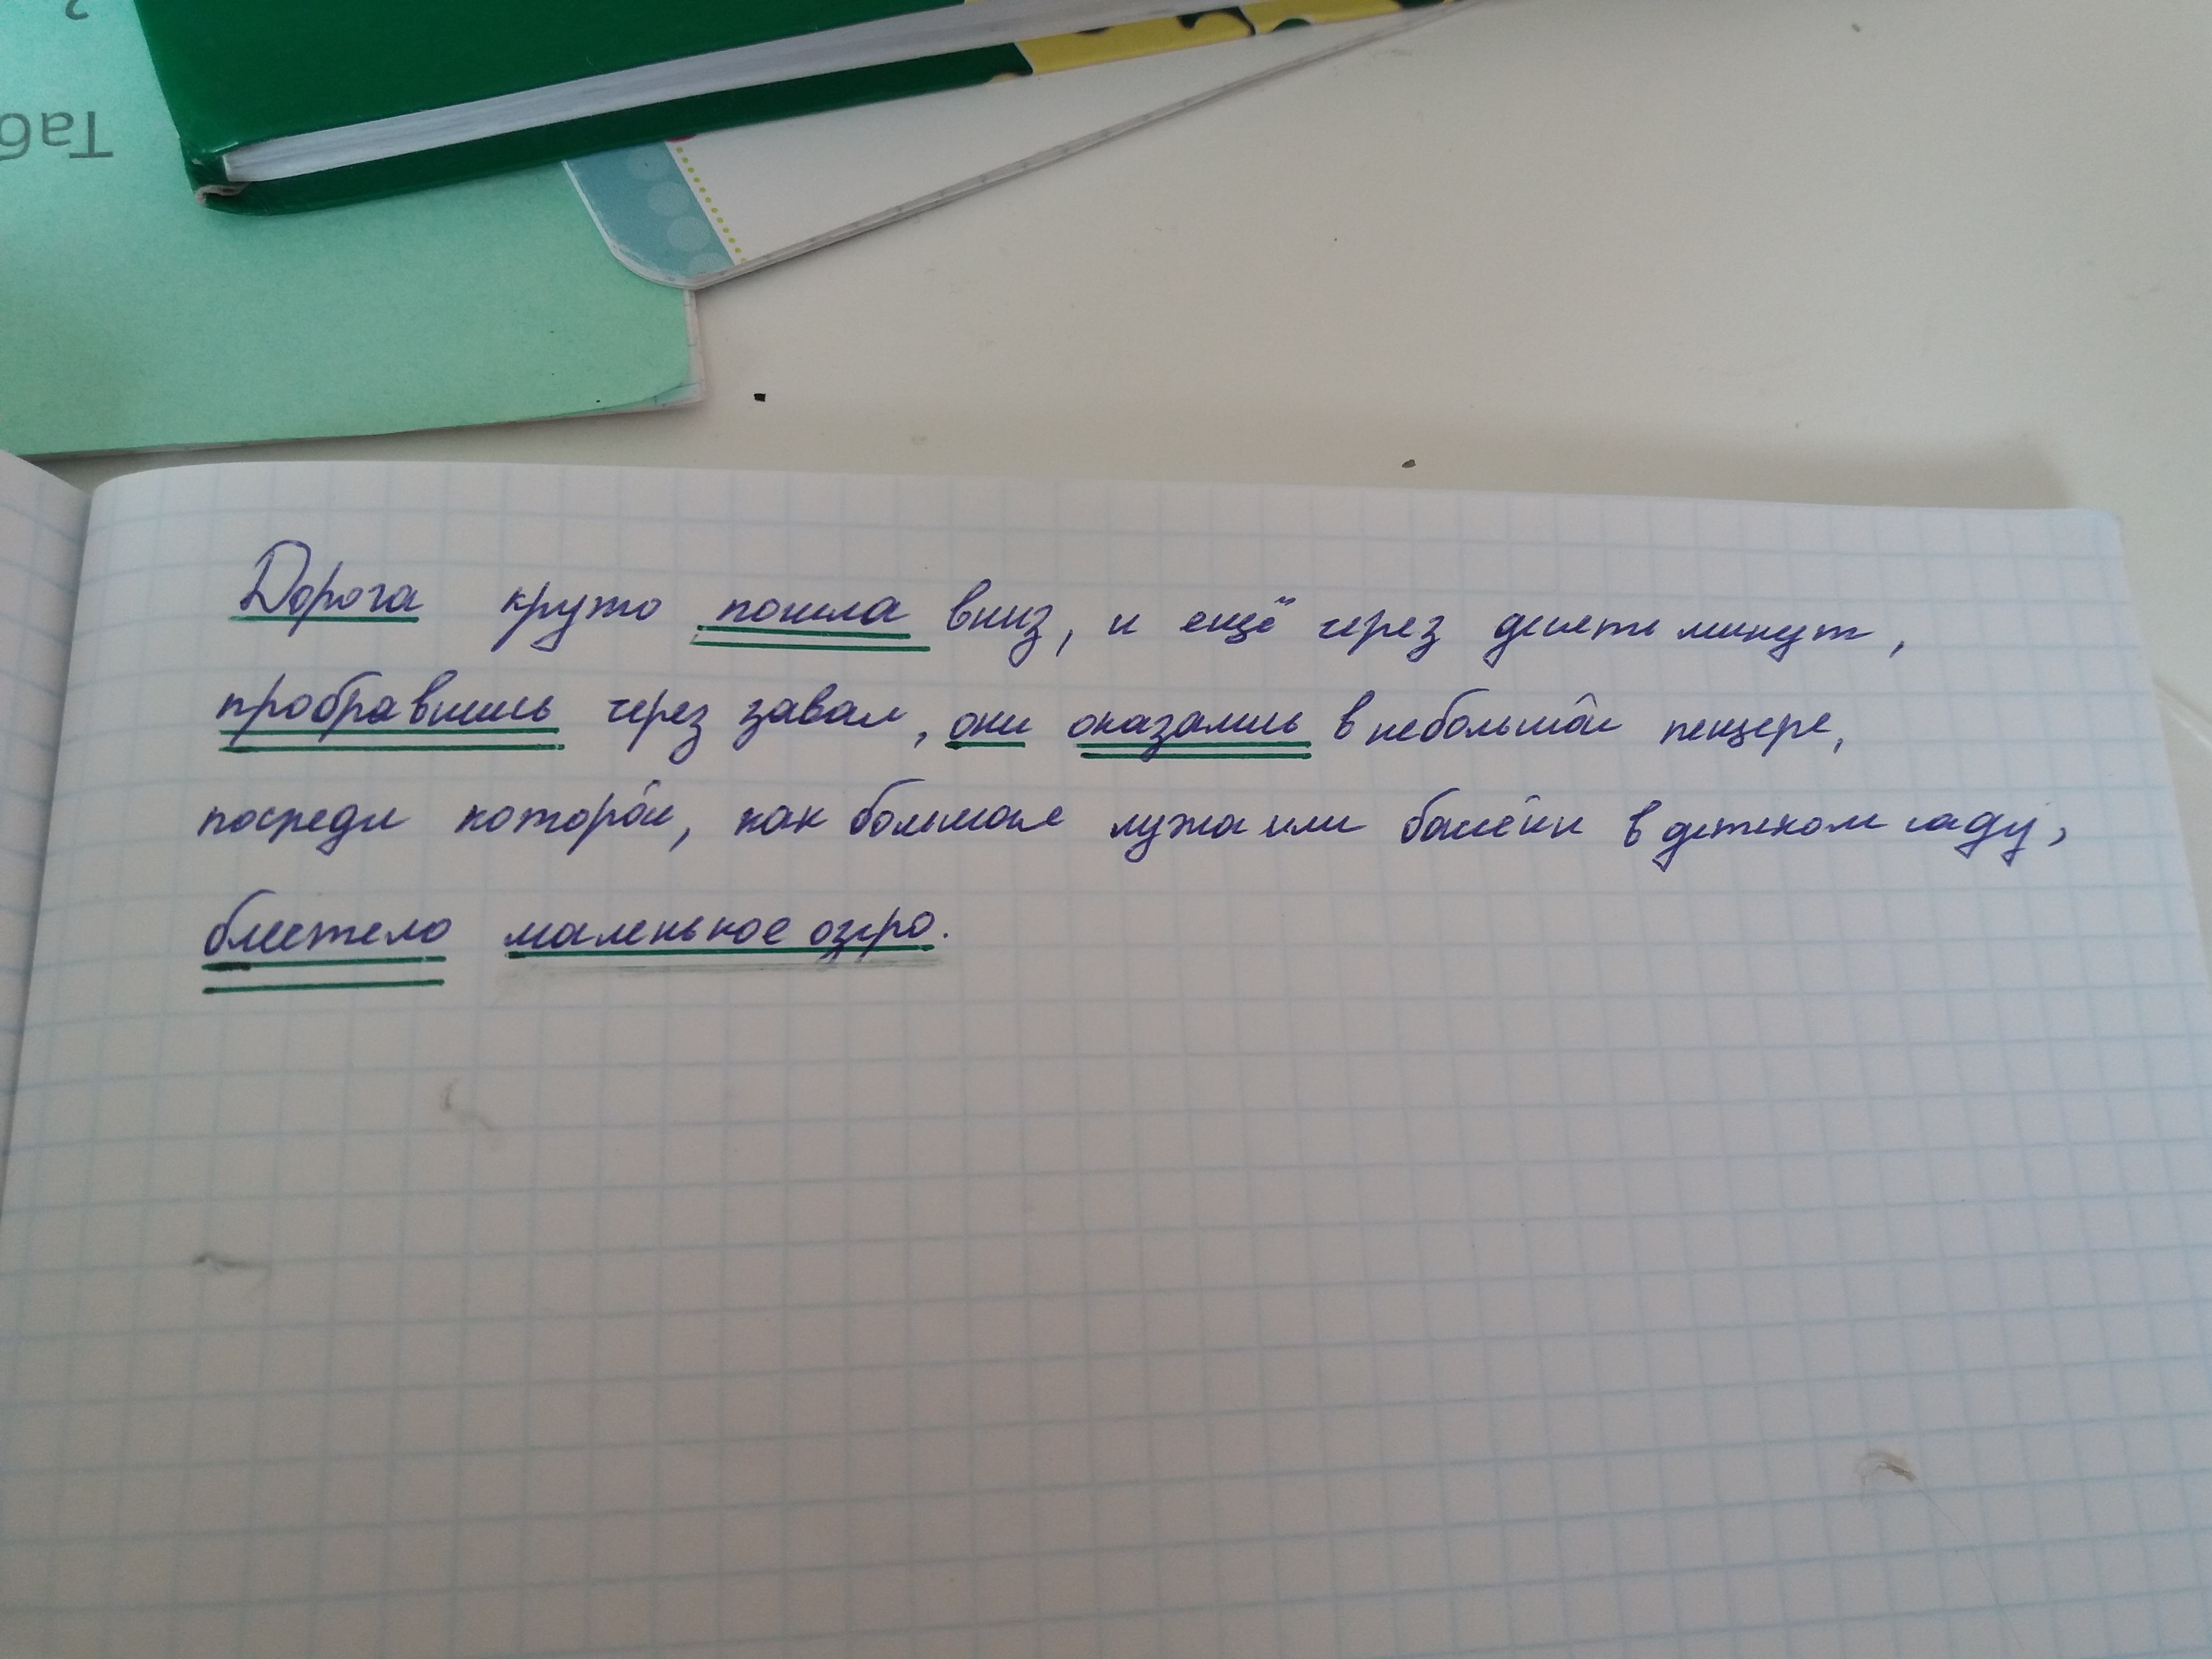 Таб
Дорога круто пошла вниз, и ещё через десять минут,
пробравшись через завал, они оказались в небольшой пещере,
посреди которой, как большая лужа или бассейн в детском саду,
блестело маленькое озеро.